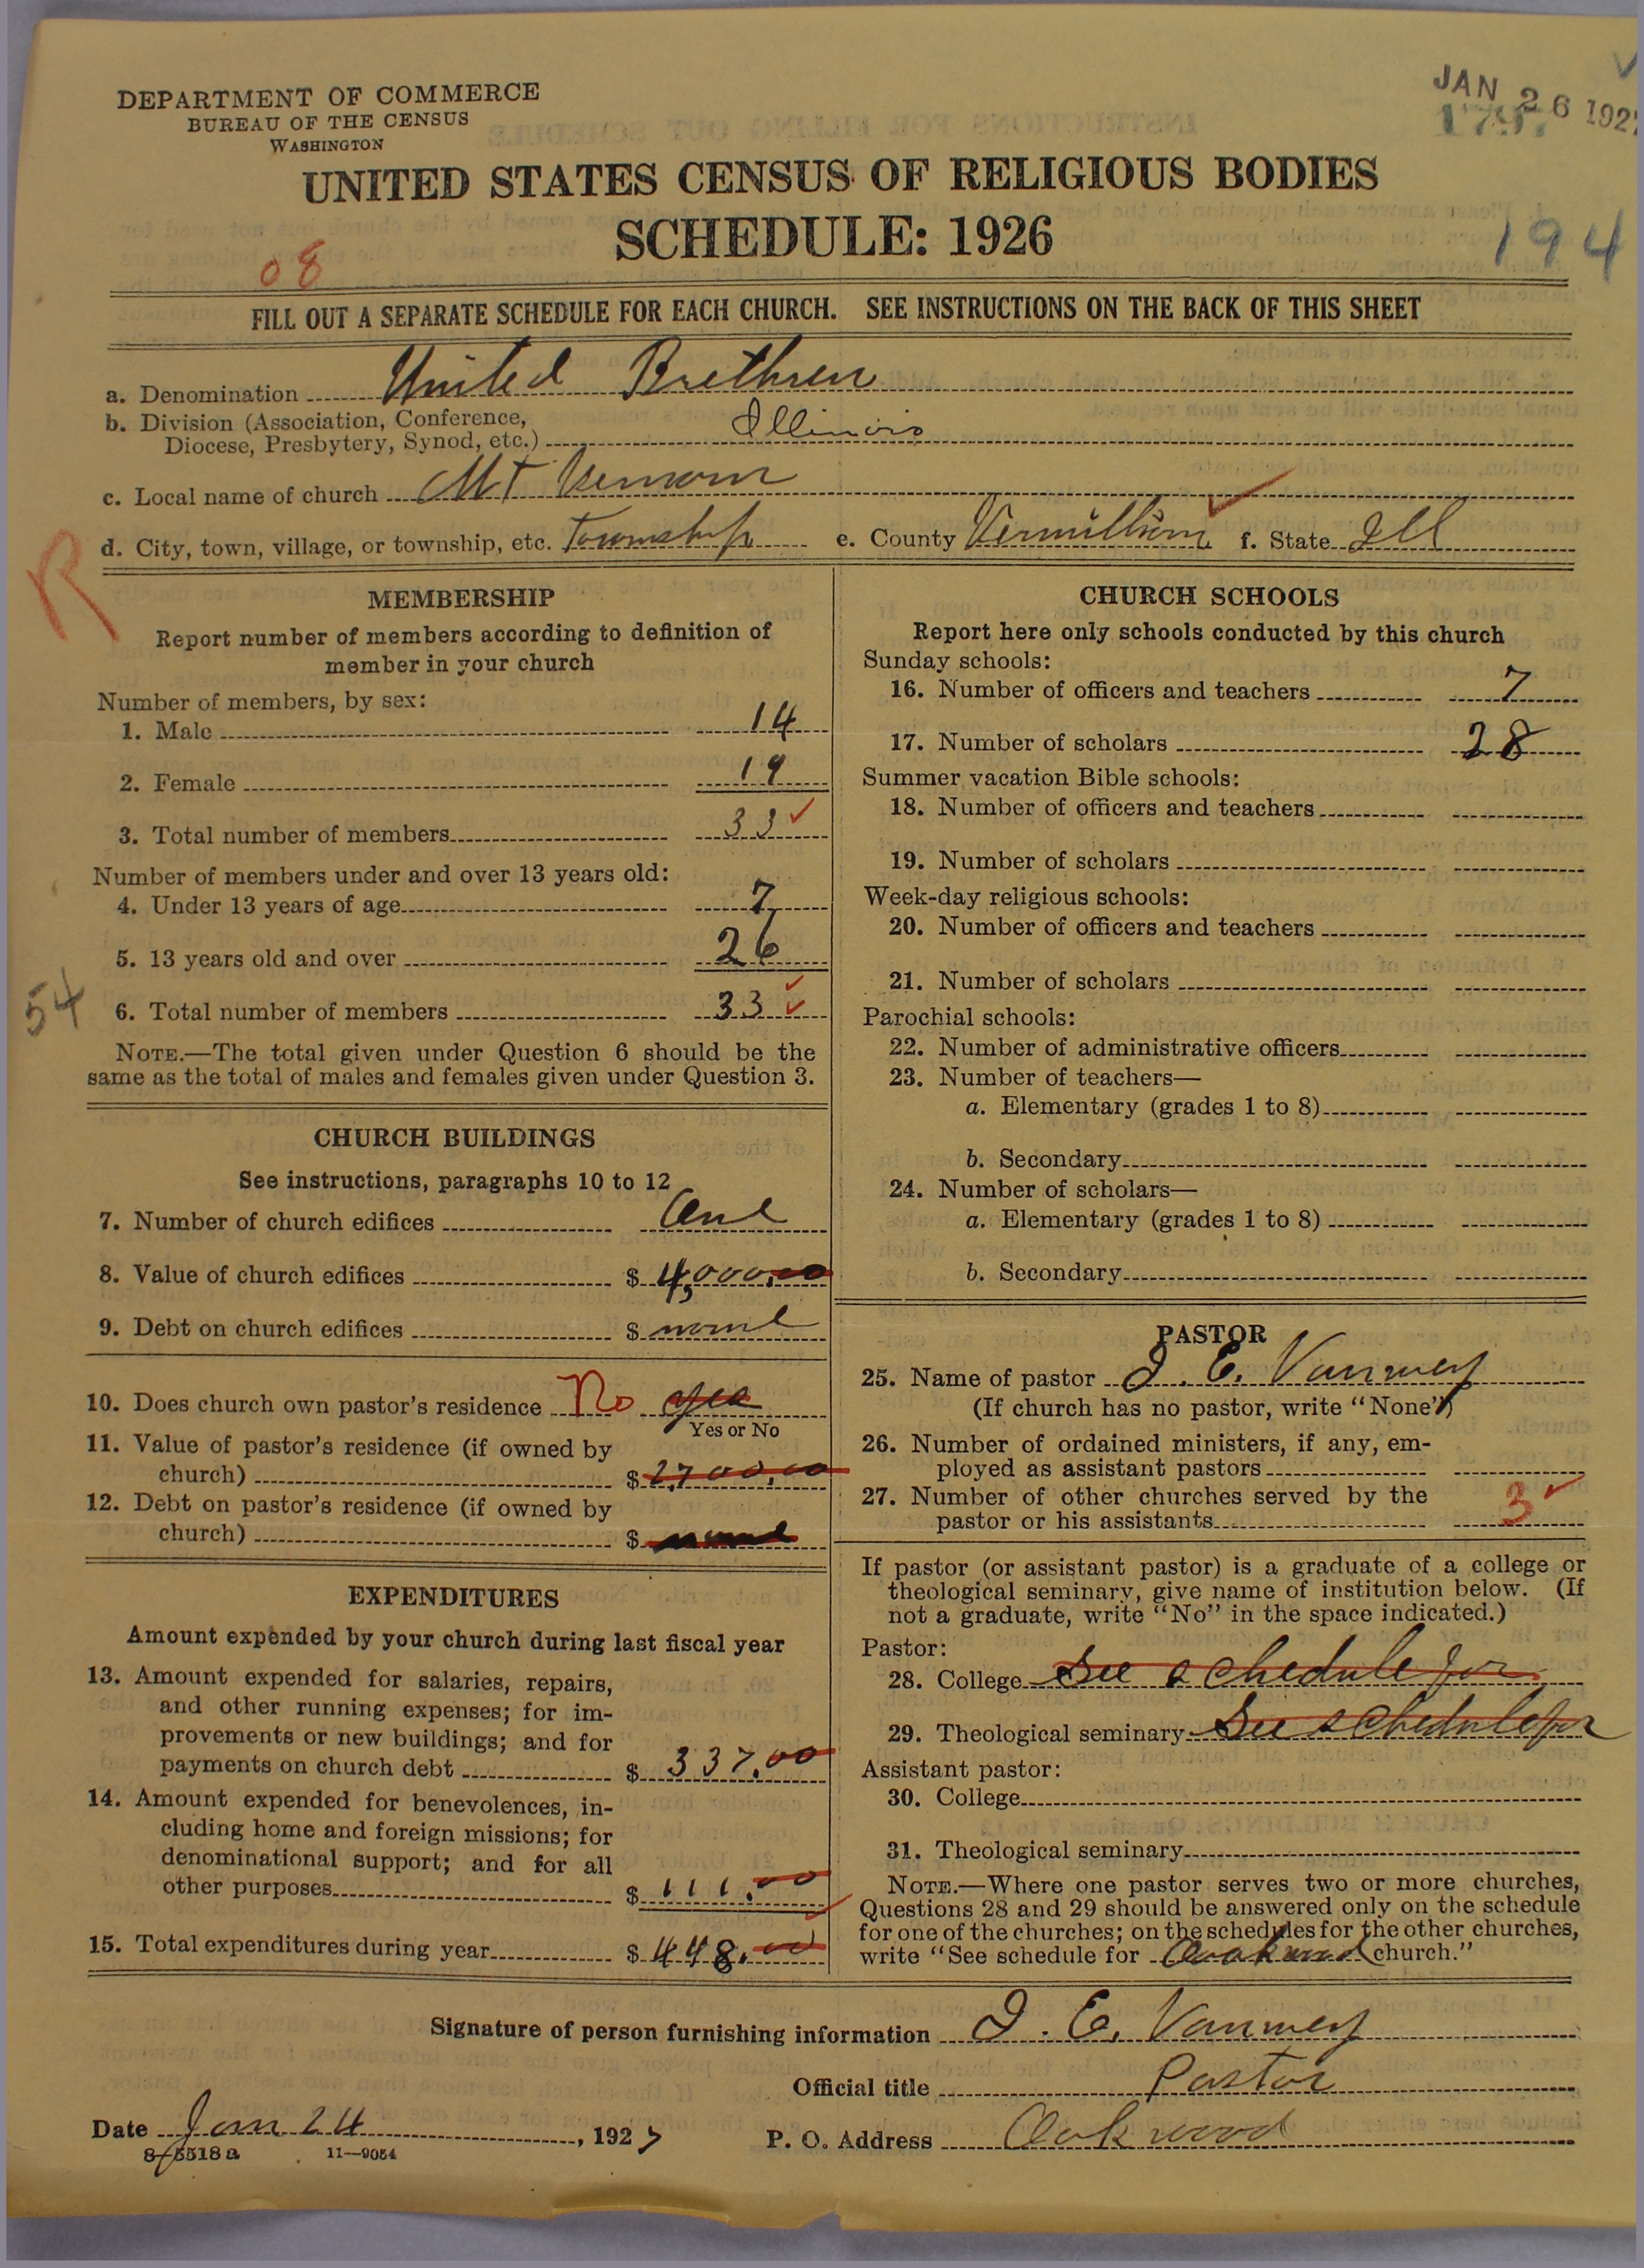 DEPARTMENT OF COMMERCE
BUREAU OF THE CENSUS
WASHINGTON
JAN 26 192
1797
UNITED STATES CENSUS OF RELIGIOUS BODIES
SCHEDULE: 1926
194
08
FILL OUT A SEPARATE SCHEDULE FOR EACH CHURCH. SEE INSTRUCTIONS ON THE BACK OF THIS SHEET
a. Denomination United Brethren
b. Division (Association, Conference,
Diocese, Presbytery, Synod, etc.) Illinois
c. Local name of church Mt Vernon
d. City, town, village, or township, etc. Township e. County Vermillion f. State Ill
R
MEMBERSHIP
Report number of members according to definition of
member in your church
Number of members, by sex:
1. Male 14
2. Female 19
3. Total number of members 33
Number of members under and over 13 years old:
4. Under 13 years of age 7
5. 13 years old and over 26
54
6. Total number of members 33
NOTE.—The total given under Question 6 should be the
same as the total of males and females given under Question 3.
CHURCH BUILDINGS
See instructions, paragraphs 10 to 12
7. Number of church edifices One
8. Value of church edifices $ 4,000.00
9. Debt on church edifices $ none
10. Does church own pastor's residence No yes
Yes or No
11. Value of pastor's residence (if owned by
church) $ 2,700.00
12. Debt on pastor's residence (if owned by
church) $ none
EXPENDITURES
Amount expended by your church during last fiscal year
13. Amount expended for salaries, repairs,
and other running expenses; for im-
provements or new buildings; and for
payments on church debt $ 337.00
14. Amount expended for benevolences, in-
cluding home and foreign missions; for
denominational support; and for all
other purposes $ 111.00
15. Total expenditures during year $ 448.00
CHURCH SCHOOLS
Report here only schools conducted by this church
Sunday schools:
16. Number of officers and teachers 7
17. Number of scholars 28
Summer vacation Bible schools:
18. Number of officers and teachers
19. Number of scholars
Week-day religious schools:
20. Number of officers and teachers
21. Number of scholars
Parochial schools:
22. Number of administrative officers
23. Number of teachers—
a. Elementary (grades 1 to 8)
b. Secondary
24. Number of scholars—
a. Elementary (grades 1 to 8)
b. Secondary
PASTOR
25. Name of pastor I. E. Vanmey
(If church has no pastor, write "None")
26. Number of ordained ministers, if any, em-
ployed as assistant pastors
27. Number of other churches served by the
pastor or his assistants 3
If pastor (or assistant pastor) is a graduate of a college or
theological seminary, give name of institution below. (If
not a graduate, write "No" in the space indicated.)
Pastor:
28. College See schedule for
29. Theological seminary See schedule for
Assistant pastor:
30. College
31. Theological seminary
NOTE.—Where one pastor serves two or more churches,
Questions 28 and 29 should be answered only on the schedule
for one of the churches; on the schedules for the other churches,
write "See schedule for Oakwood church."
Signature of person furnishing information I. E. Vanmey
Official title Pastor
Date Jan 24, 1927
P. O. Address Oakwood
8-5518a 11—9054